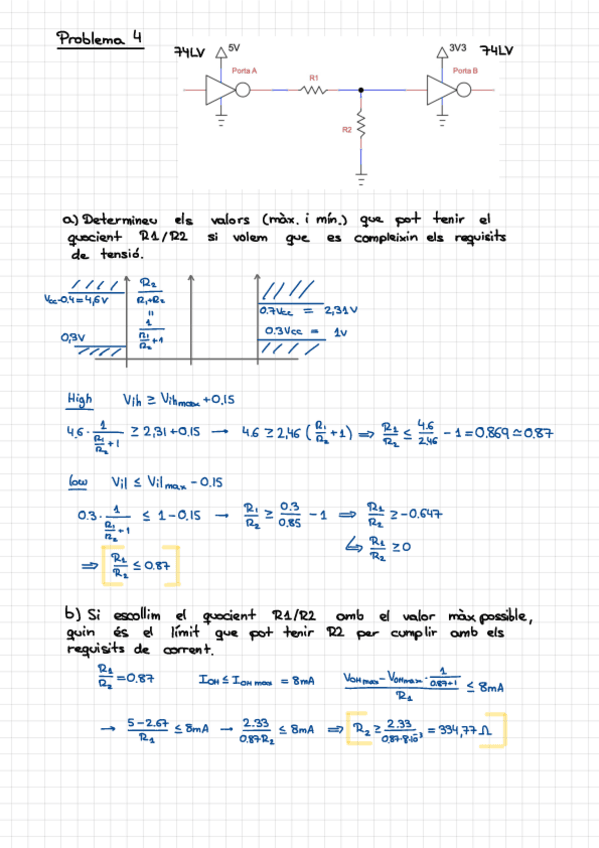 Problema 4
74LV 5V 3V3 74LV
Porta A R1 Porta B
R2
a) Determineu els valors (màx. i mín.) que pot tenir el
quocient R1/R2 si volem que es compleixin els requisits
de tensió.
Vcc-0.4=4,6V R2/(R1+R2) = 1/(R1/R2+1) 0.7Vcc = 2,31V
0,3V 0.3Vcc = 1V
High Vih ≥ Vihmax+0.15
4,6 · 1/(R1/R2+1) ≥ 2,31+0.15 → 4.6 ≥ 2,46 (R1/R2+1) ⇒ R1/R2 ≤ 4.6/2.46 - 1 = 0.869 ≃ 0.87
Low Vil ≤ Vilmax - 0.15
0.3 · 1/(R1/R2+1) ≤ 1-0.15 → R1/R2 ≥ 0.3/0.85 - 1 ⇒ R1/R2 ≥ -0.647
↳ R1/R2 ≥ 0
⇒ [R1/R2 ≤ 0.87]
b) Si escollim el quocient R1/R2 amb el valor màx possible,
quin és el límit que pot tenir R2 per cumplir amb els
requisits de corrent.
R1/R2 = 0.87 IOH ≤ IOH max = 8mA (VOHmax - VOHmax · 1/(0.87+1))/R1 ≤ 8mA
→ (5-2.67)/R1 ≤ 8mA → 2.33/(0.87R2) ≤ 8mA ⇒ [R2 ≥ 2.33/(0.87·8·10⁻³) = 334,77Ω]